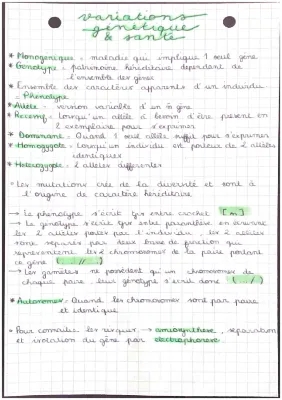 variations
génétique
& santé
* Monogénique = maladie qui implique 1 seul gène
* Génotype = patrimoine héréditaire dépendant de
l'ensemble des gènes
* Ensemble des caractères apparents d'un individu
= Phénotype
* Allèle = version variable d'un même gène
* Récessif = Lorsqu'un allèle à besoin d'être présent en
2 exemplaire pour s'exprimer
* Dominant = Quand 1 seul allèle suffit pour s'exprimer
* Homozygote = Lorsqu'un individu est porteur de 2 allèles
identiques
* Hétérozygote = 2 allèles différentes
* Les mutations crée de la diversité et sont à
l'origine de caractère héréditaire.
→ Le phénotype s'écrit tjrs entre crochet [m]
→ Le génotype s'écrit tjrs parenthèse en
les 2 allèles porter par l'individu, les 2 allèles
sont séparés par deux barre de fraction qui
représentent les 2 chromosomes de la paire portant
ce gène (... // ...)
→ Les gamètes ne possèdent qu'un chromosome de
chaque paire, leur génotype s'écrit donc (... /)
* Autosomes = Quand les chromosomes sont par paire
et identique
* Pour connaître les → amniosynthèse, séparation
et isolation du gène par électrophorèse